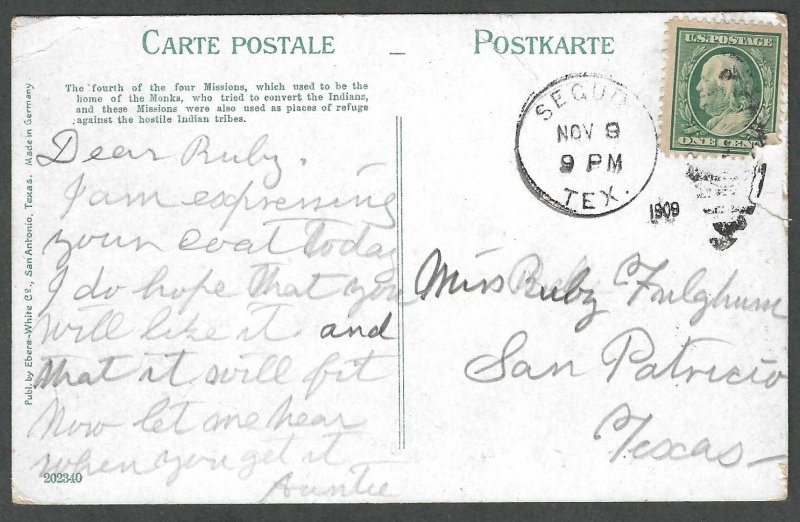 CARTE POSTALE – POSTKARTE
The fourth of the four Missions, which used to be the
home of the Monks, who tried to convert the Indians,
and these Missions were also used as places of refuge
against the hostile Indian tribes.
Publ. by Ebers-White Co., San Antonio, Texas. Made in Germany
Dear Ruby,
I am expressing
your coat today
I do hope that you
will like it and
that it will fit
Now let me hear
when you get it
Auntie
202340
U.S. POSTAGE
ONE CENT
SEGUIN
NOV 9
9 PM
TEX.
1909
Miss Ruby Fulghum
San Patricio
Texas